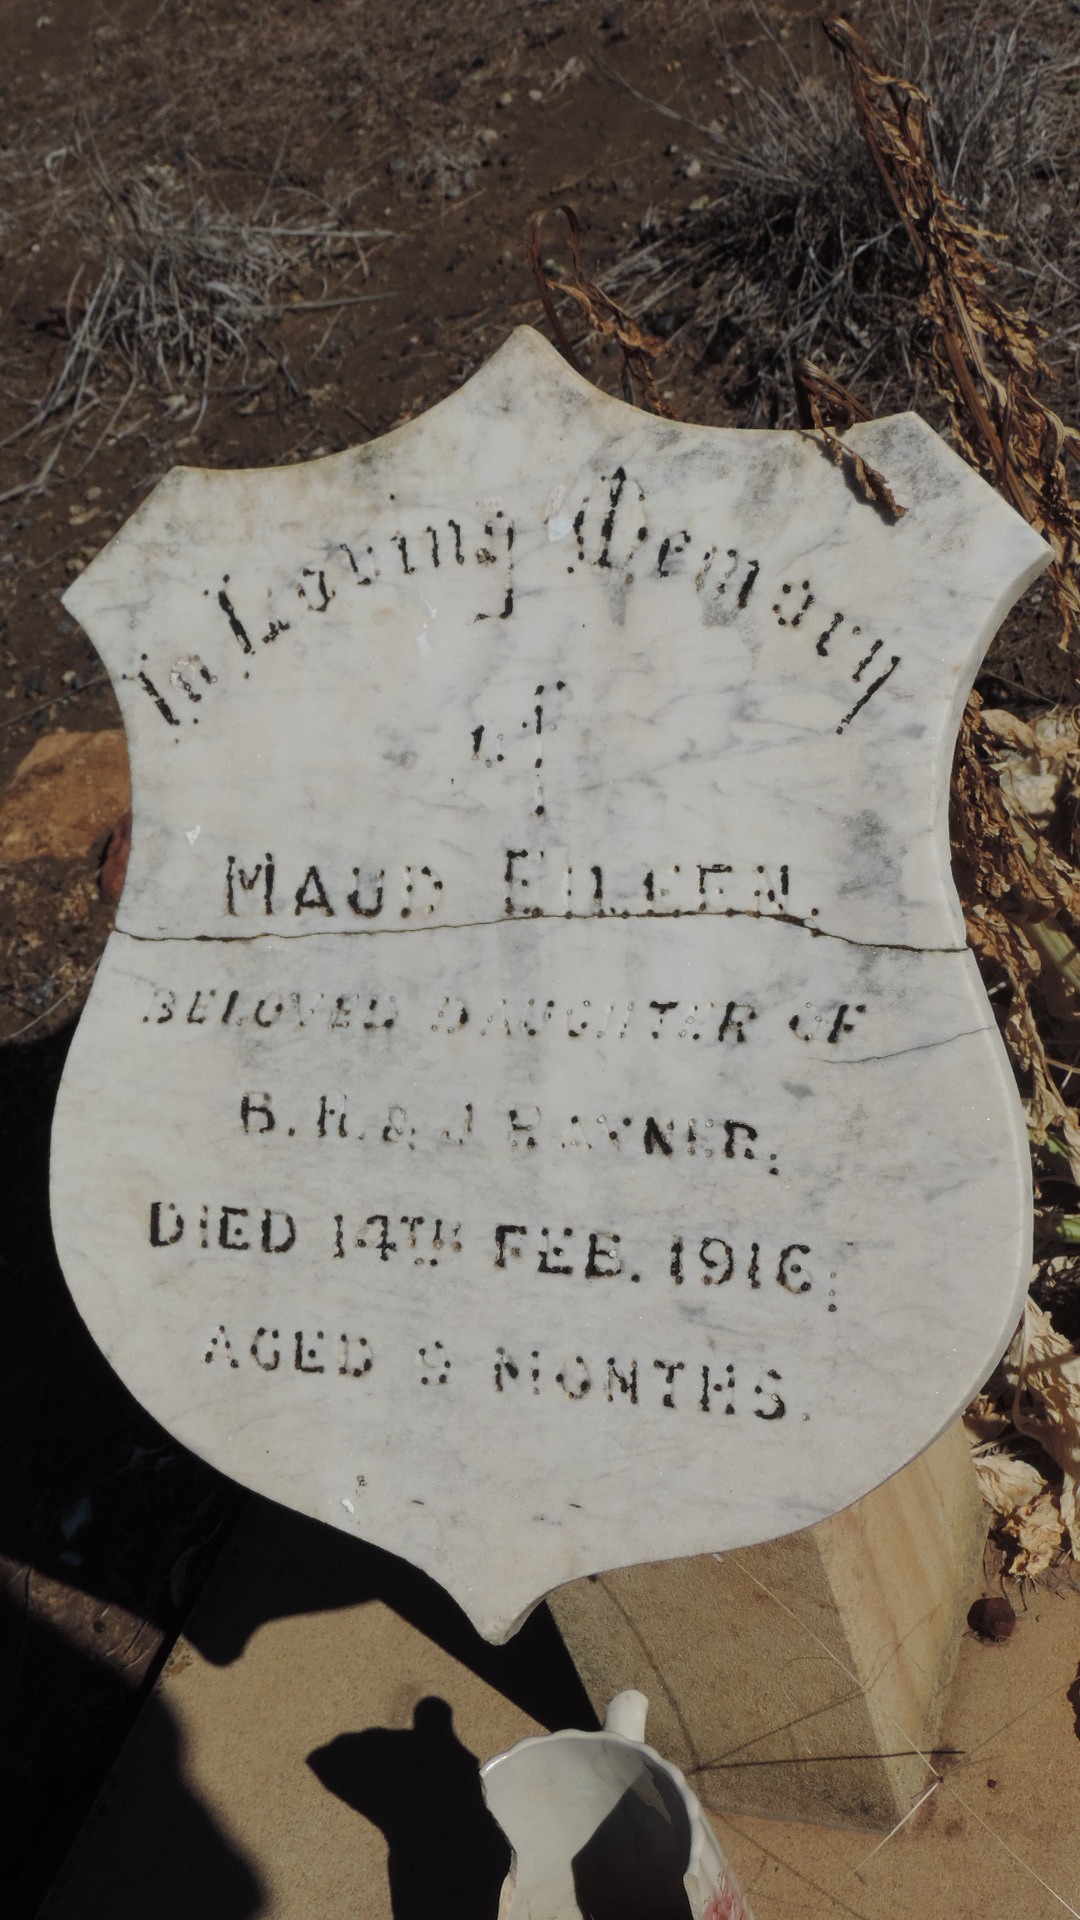 In Loving Memory
of
MAUD EILEEN.
BELOVED DAUGHTER OF
B. H. & J RAYNER,
DIED 14TH FEB. 1916,
AGED 9 MONTHS.